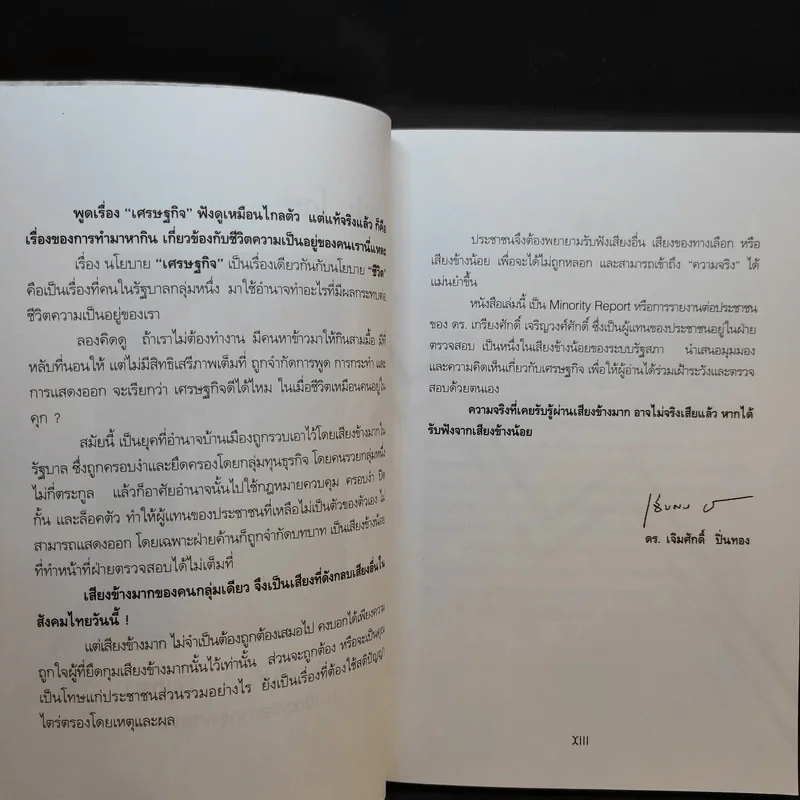 พูดเรื่อง “เศรษฐกิจ” ฟังดูเหมือนไกลตัว แต่แท้จริงแล้ว ก็คือ
เรื่องของการทำมาหากิน เกี่ยวข้องกับชีวิตความเป็นอยู่ของคนเรานี่แหละ
เรื่อง นโยบาย “เศรษฐกิจ” เป็นเรื่องเดียวกันกับนโยบาย “ชีวิต”
คือเป็นเรื่องที่คนในรัฐบาลกลุ่มหนึ่ง มาใช้อำนาจทำอะไรที่มีผลกระทบต่อ
ชีวิตความเป็นอยู่ของเรา
ลองคิดดู ถ้าเราไม่ต้องทำงาน มีคนหาข้าวมาให้กินสามมื้อ มีที่
หลับที่นอนให้ แต่ไม่มีสิทธิเสรีภาพเต็มที่ ถูกจำกัดการพูด การกระทำ และ
การแสดงออก จะเรียกว่า เศรษฐกิจดีได้ไหม ในเมื่อชีวิตเหมือนคนอยู่ใน
คุก ?
สมัยนี้ เป็นยุคที่อำนาจบ้านเมืองถูกรวบเอาไว้โดยเสียงข้างมากใน
รัฐบาล ซึ่งถูกครอบงำและยึดครองโดยกลุ่มทุนธุรกิจ โดยคนรวยกลุ่มหนึ่ง
ไม่กี่ตระกูล แล้วก็อาศัยอำนาจนั้นไปใช้กฎหมายควบคุม ครอบงำ ปิด
กั้น และล็อคตัว ทำให้ผู้แทนของประชาชนที่เหลือไม่เป็นตัวของตัวเอง ไม่
สามารถแสดงออก โดยเฉพาะฝ่ายค้านก็ถูกจำกัดบทบาท เป็นเสียงข้างน้อย
ที่ทำหน้าที่ฝ่ายตรวจสอบได้ไม่เต็มที่
เสียงข้างมากของคนกลุ่มเดียว จึงเป็นเสียงที่ดังกลบเสียงอื่นใน
สังคมไทยวันนี้ !
แต่เสียงข้างมาก ไม่จำเป็นต้องถูกต้องเสมอไป คงบอกได้เพียงความ
ถูกใจผู้ที่ยึดกุมเสียงข้างมากนั้นไว้เท่านั้น ส่วนจะถูกต้อง หรือจะเป็นคุณ
เป็นโทษแก่ประชาชนส่วนรวมอย่างไร ยังเป็นเรื่องที่ต้องใช้สติปัญญา
ไตร่ตรองโดยเหตุและผล
ประชาชนจึงต้องพยายามรับฟังเสียงอื่น เสียงของทางเลือก หรือ
เสียงข้างน้อย เพื่อจะได้ไม่ถูกหลอก และสามารถเข้าถึง “ความจริง” ได้
แม่นยำขึ้น
หนังสือเล่มนี้ เป็น Minority Report หรือการรายงานต่อประชาชน
ของ ดร. เกรียงศักดิ์ เจริญวงศ์ศักดิ์ ซึ่งเป็นผู้แทนของประชาชนอยู่ในฝ่าย
ตรวจสอบ เป็นหนึ่งในเสียงข้างน้อยของระบบรัฐสภา นำเสนอมุมมอง
และความคิดเห็นเกี่ยวกับเศรษฐกิจ เพื่อให้ผู้อ่านได้ร่วมเฝ้าระวังและตรวจ
สอบด้วยตนเอง
ความจริงที่เคยรับรู้ผ่านเสียงข้างมาก อาจไม่จริงเสียแล้ว หากได้
รับฟังจากเสียงข้างน้อย
ดร. เจิมศักดิ์ ปิ่นทอง
XIII